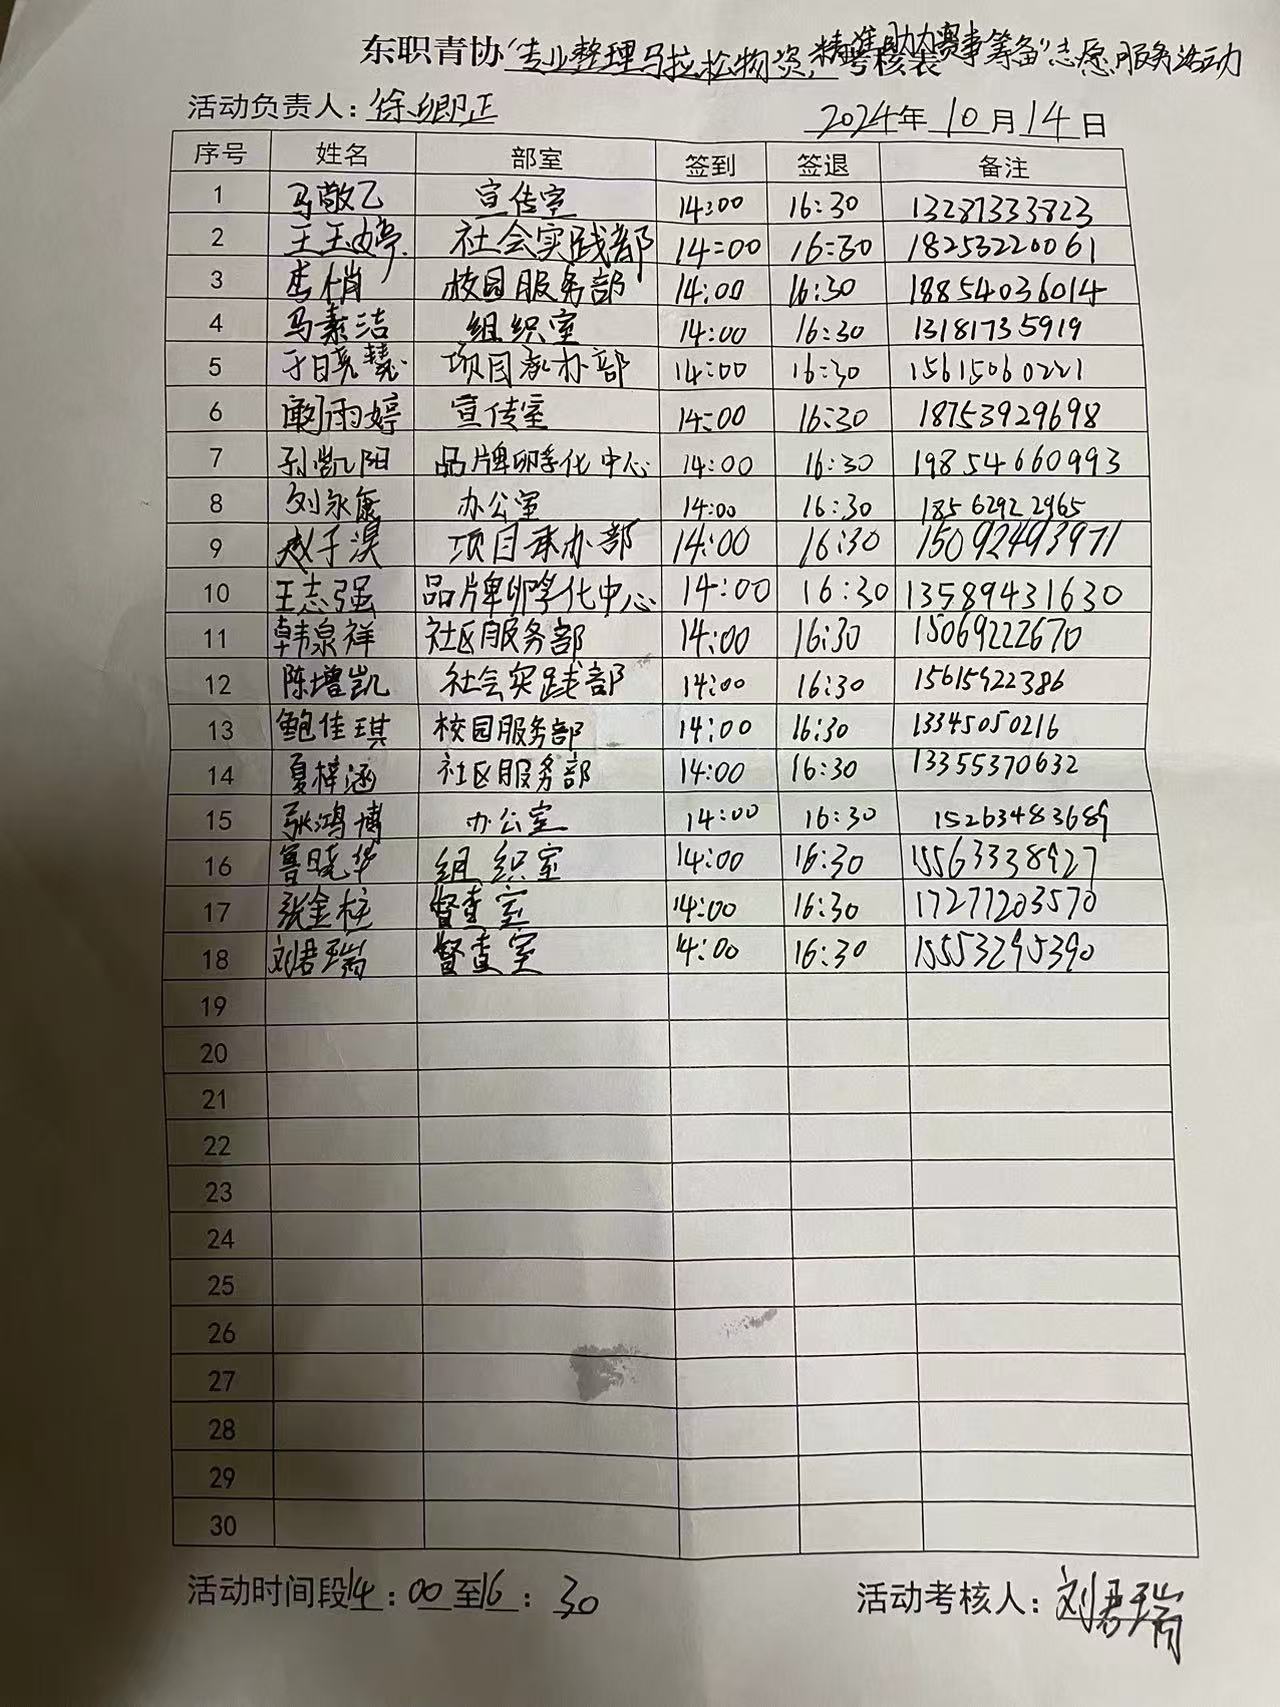 东职青协“专业整理马拉松物资，精准助力赛事筹备”志愿服务活动考核表
活动负责人：徐卿正 2024年10月14日
序号 姓名 部室 签到 签退 备注
1 马敬乙 宣传室 14:00 16:30 13287333823
2 王玉婷 社会实践部 14:00 16:30 18253220061
3 李悄 校园服务部 14:00 16:30 18854036014
4 马素洁 组织室 14:00 16:30 13181735919
5 于晓慧 项目承办部 14:00 16:30 15615060221
6 阚雨婷 宣传室 14:00 16:30 18753929698
7 孙凯阳 品牌孵化中心 14:00 16:30 19854660993
8 刘永康 办公室 14:00 16:30 18562922965
9 赵子淏 项目承办部 14:00 16:30 15092493971
10 王志强 品牌孵化中心 14:00 16:30 13589431630
11 韩泉祥 社区服务部 14:00 16:30 15069222670
12 陈增凯 社会实践部 14:00 16:30 15615922386
13 鲍佳琪 校园服务部 14:00 16:30 13345050216
14 夏梓涵 社区服务部 14:00 16:30 13355370632
15 张鸿博 办公室 14:00 16:30 15263483689
16 鲁晓华 组织室 14:00 16:30 15563338927
17 张金柱 督查室 14:00 16:30 17277203570
18 刘君瑞 督查室 14:00 16:30 15553295390
19
20
21
22
23
24
25
26
27
28
29
30
活动时间段14:00至16:30 活动考核人：刘君瑞